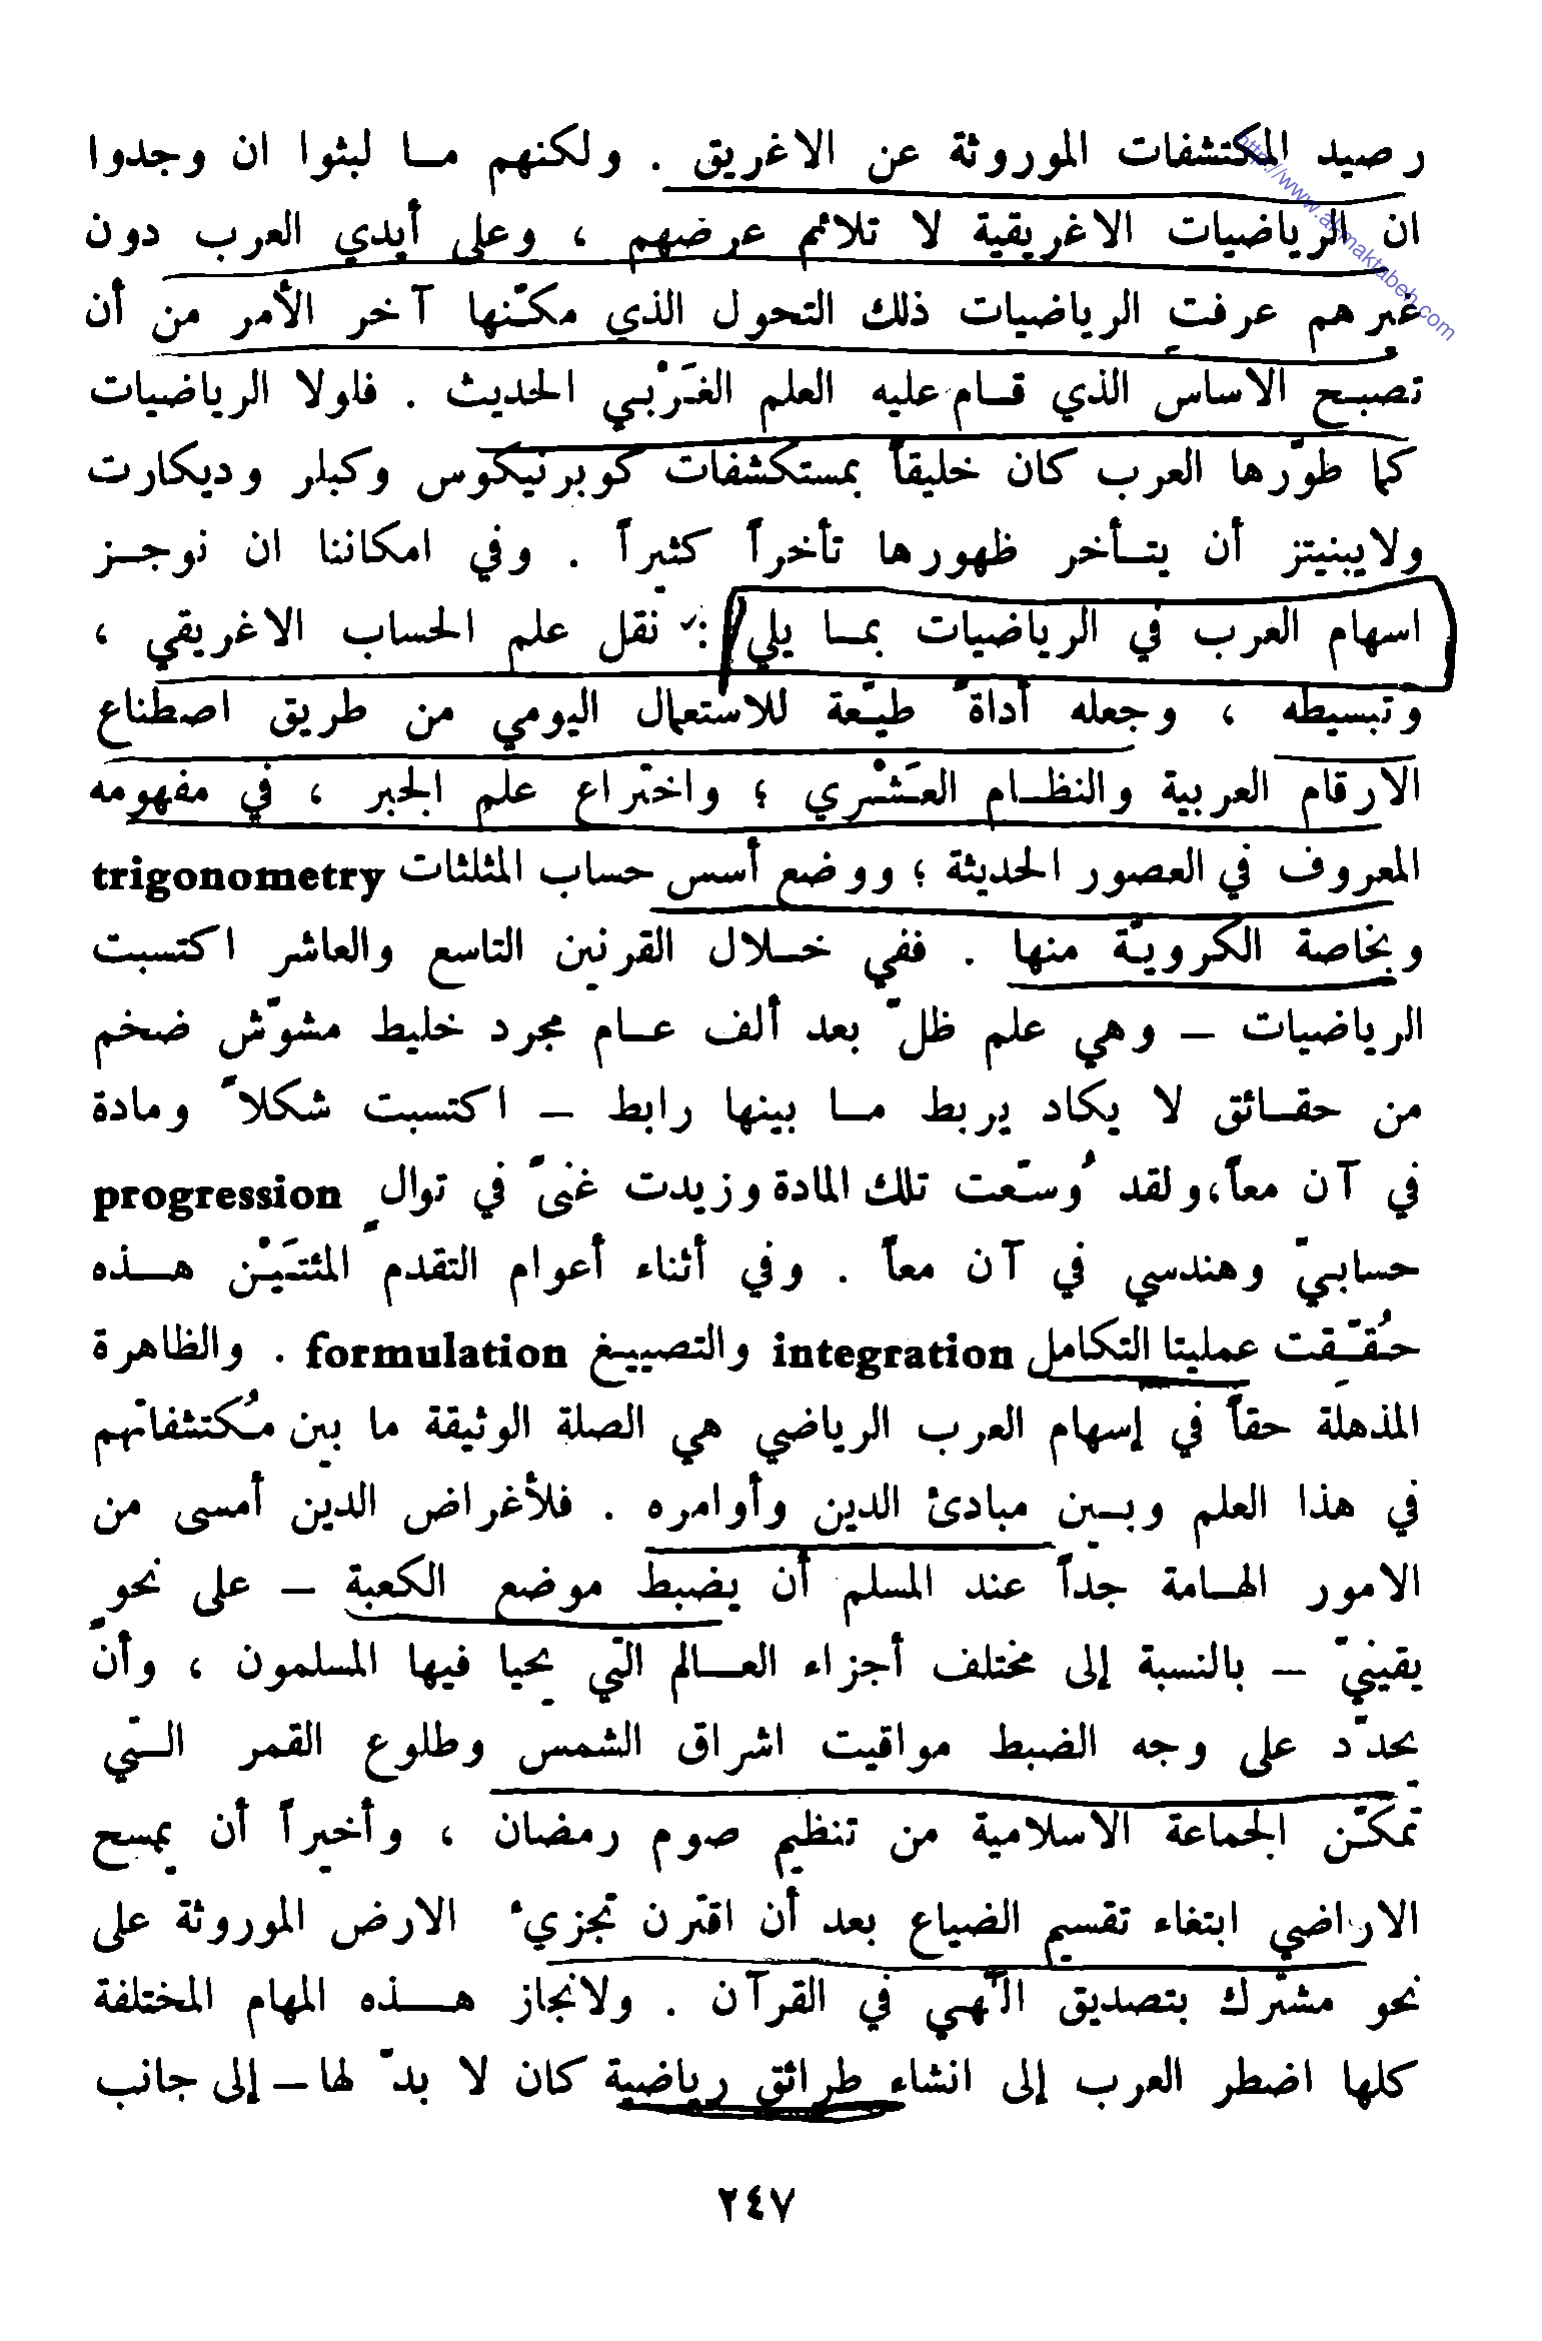 رصيد المكتشفات الموروثة عن الاغريق . ولكنهم مـا لبثوا ان وجدوا
ان الرياضيات الاغريقية لا تلائم عرضهم ، وعلى أيدي العرب دون
غيرهم عرفت الرياضيات ذلك التحول الذي مكّنها آخر الأمر من أن
تصبـح الاساس الذي قـام عليه العلم الغَرْبـي الحديث . فلولا الرياضيات
كما طوّرها العرب كان خليقاً بمستكشفات كوبرنيكوس وكبلر وديكارت
ولايبنيتز أن يتـأخر ظهورها تأخراً كثيراً . وفي امكاننا ان نوجـز
اسهام العرب في الرياضيات بمـا يلي : نقل علم الحساب الاغريقي ،
وتبسيطه ، وجعله أداةً طيّعة للاستعمال اليومي من طريق اصطناع
الارقام العربية والنظـام العَشْري ؛ واختراع علم الجبر ، في مفهومه
المعروف في العصور الحديثة ؛ ووضع أسس حساب المثلثات trigonometry
وبخاصة الكرويّة منها . ففي خـلال القرنين التاسع والعاشر اكتسبت
الرياضيات – وهي علم ظلّ بعد ألف عـام مجرد خليط مشوّش ضخم
من حقـائق لا يكاد يربط مـا بينها رابط – اكتسبت شكلاً ومادة
في آن معاً، ولقد وُسّعت تلك المادة وزيدت غنىً في توالٍ progression
حسابيّ وهندسي في آن معاً . وفي أثناء أعوام التقدم المئتَيْن هـذه
حُقّقت عمليتا التكامل integration والتصييغ formulation . والظاهرة
المذهلة حقاً في إسهام العرب الرياضي هي الصلة الوثيقة ما بين مُكتشفاتهم
في هذا العلم وبـين مبادئ الدين وأوامره . فلأغراض الدين أمسى من
الامور الهـامة جداً عند المسلم أن يضبط موضع الكعبة – على نحوٍ
يقينيّ – بالنسبة إلى مختلف أجزاء العـالم التي يحيا فيها المسلمون ، وأن
يحدّد على وجه الضبط مواقيت اشراق الشمس وطلوع القمر الـتي
تمكّن الجماعة الاسلامية من تنظيم صوم رمضان ، وأخيراً أن يمسح
الاراضي ابتغاء تقسيم الضياع بعد أن اقترن تجزيء الارض الموروثة على
نحو مشترك بتصديق الٓهي في القرآن . ولانجاز هـذه المهام المختلفة
كلها اضطر العرب إلى انشاء طرائق رياضية كان لا بدّ لها – إلى جانب
٢٤٧
http://www.al-maktabeh.com